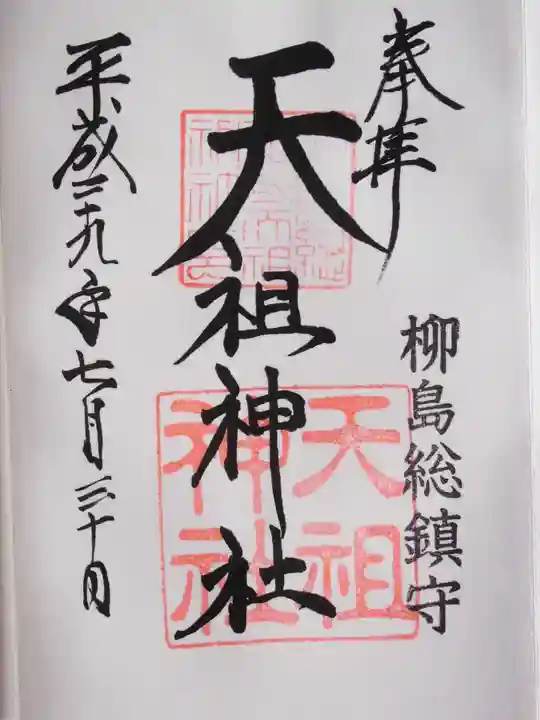 奉拝
柳島総鎮守
天祖神社
天祖
神社
平成二十九年七月三十日